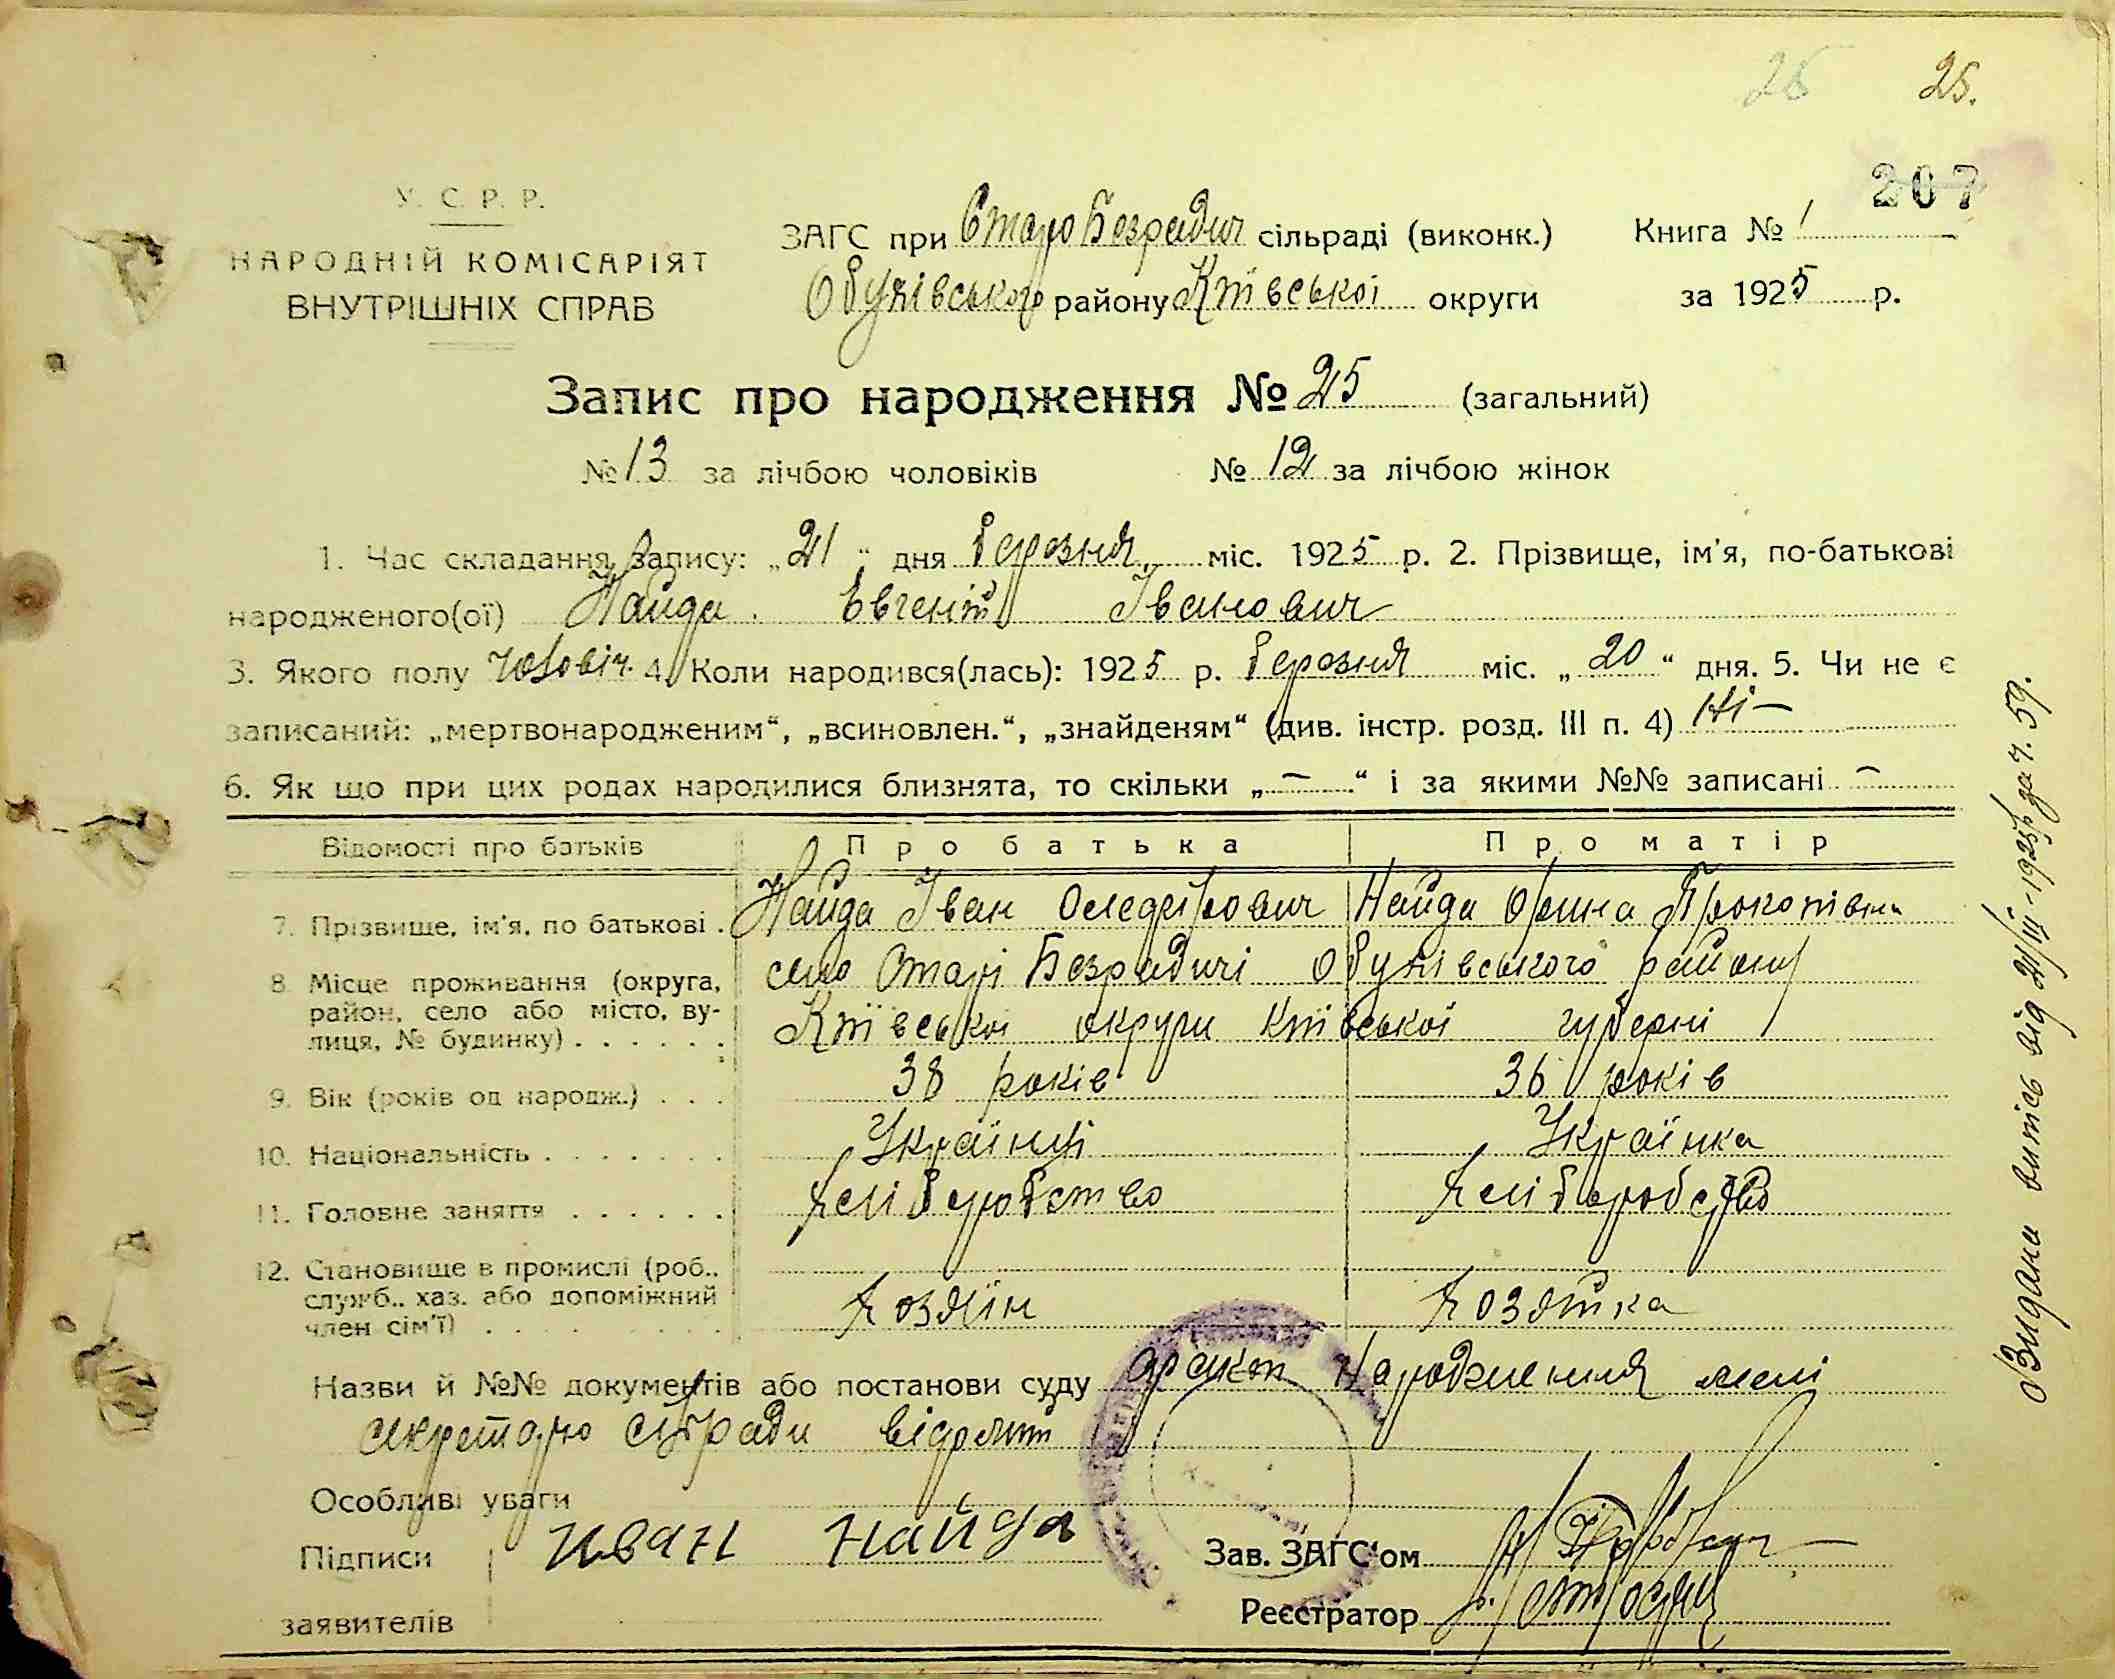 25 25.
207
У. С. Р. Р.
НАРОДНІЙ КОМІСАРІЯТ
ВНУТРІШНІХ СПРАВ
ЗАГС при Старо Безрадич сільраді (виконк.) Книга № 1
Обухівського району Київської округи за 1925 р.
Запис про народження № 25 (загальний)
№ 13 за лічбою чоловіків № 12 за лічбою жінок
1. Час складання запису: „21" дня березня міс. 1925 р. 2. Прізвище, ім'я, по-батькові
народженого(ої) Найда Евгеній Іванович
3. Якого полу чоловіч. 4. Коли народився(лась): 1925 р. березня міс. „20" дня. 5. Чи не є
записаний: „мертвонародженим", „всиновлен.", „знайденям" (див. інстр. розд. III п. 4) Ні –
6. Як що при цих родах народилися близнята, то скільки „–" і за якими №№ записані –
Відомості про батьків Про батька Про матір
7. Прізвише, ім'я, по батькові . Найда Іван Найда Орина Прокопівна
8. Місце проживання (округа, село Старі Безрадичі Обухівського району
район, село або місто, ву- Київської округи Київської губерні
лиця, № будинку) . . . . . .
9. Вік (років од народж.) . . . 38 років 36 років
10. Національність . . . . . . . Українці Українка
11. Головне заняття . . . . . . Хліборобство Хліборобство
12. Становище в промислі (роб.,
служб., хаз. або допоміжний Хозяїн Хозяйка
член сім'ї) . . . . . . . .
Назви й №№ документів або постанови суду факт Народження мені
секретарю сільради відомий
Особливі уваги
Підписи Иван Найда Зав. ЗАГС'ом
заявителів Реєстратор
Видана випісь від 21/III-1925р за ч. 59.